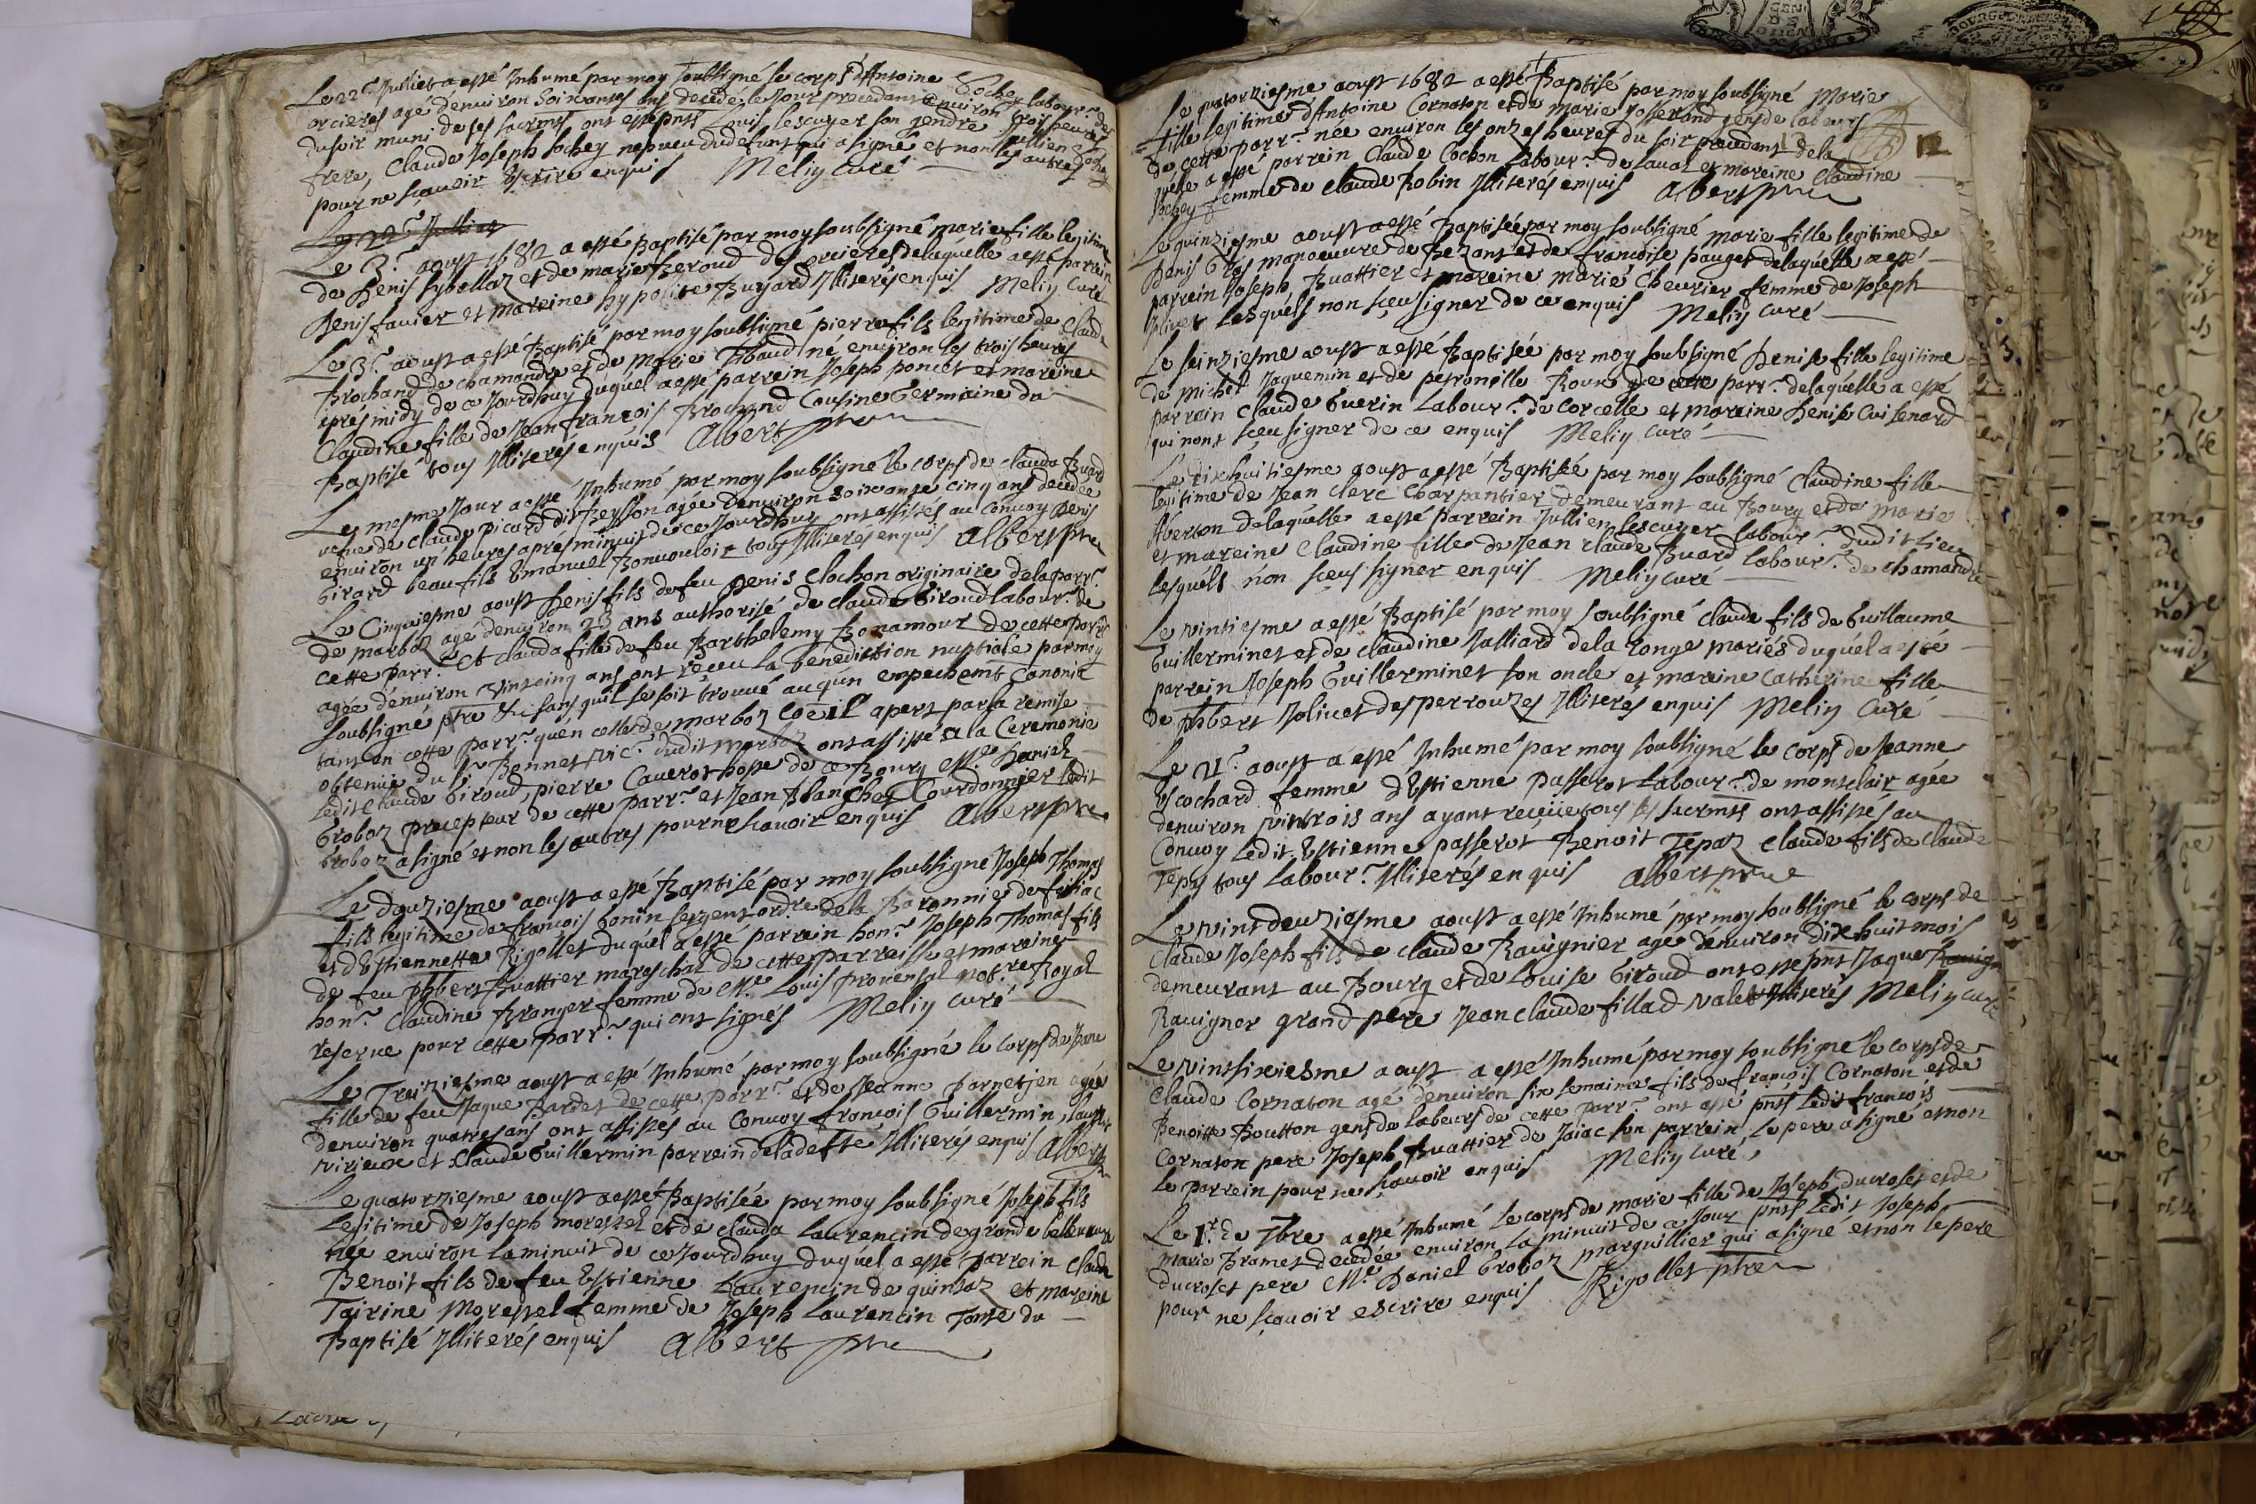 Le 22e Julliet a esté Inhumé par moy soubsigné le corps d'Antoine Cochey labourr des
orcieres agé denuiron Soixantes ans decedé le Jour precedant enuiron trois heures
du soir muni de ses sacrmts ont esté pnts Louis lescuyer son gendre Jullien Cochey
frere, Claude Joseph Cochey nepueu du defunt qui a signé et non les autres
pour ne sçauoir Escrire enquis Meliy curé
Le 22e Julliet
Le 3e aoust 1682 a esté Baptisé par moy soubsigné marie fille legitime
de Denis sybellaz et de marie Beroud des orcieres delaquelle a esté parrein
Denis fauier et mareine hypolite Buyard Illiterés enquis Meliy Curé
Le 3e aoust a esté Baptisé par moy soubsigné pierre fils legitime de Claude
Brochand de chamandre et de Marie Tibaud né enuiron les trois heures
aprés midy de ce Jourdhuy duquel a esté parrein Joseph poncet et mareine
Claudine fille de Jean françois Brochand Cousine Germaine du
Baptisé tous Illiteres enquis Albert ptre
Le mesme Jour a esté Inhumé par moy soubsigné le corps de clauda Buard
vefue de claude picard dit Reysson agée denuiron soixante cinq ans decedée
enuiron un heures apres minuit de ce Jourdhuy ont assistés au conuoy Denis
Girard beau fils Emanuel Bonuouloir tous Illiterés enquis Albert ptre
Le Cinquiesme aoust Denis fils de feu Denis Clochon originaire de la parr.
de marboz agé denuiron 23 ans authorisé de claude Giroud labourr de
cette parr. Et clauda fille de feu Barthelemy Bonamour de cette parr.
agée denuiron vintcinq ans ont receu la benediction nuptiale par moy
soubsigné ptre Vic. sans quil se soit trouué aucun empechemt Canonic
tant en cette parr. qu'en celle de marboz coe il apert par la remise
obtenüe du sr Bonnet vic. dudit marboz ont assistés a la Ceremonie
ledit Claude Giroud, pierre Cauerot hoste de ce Bourg Mre Daniel
Groboz precepteur de cette parr. et Jean Blanchet Courdonnier ledit
Groboz a signé et non les autres pour ne sçauoir enquis Albert ptre
Le douziesme aoust a esté Baptisé par moy soubsigné Joseph Thomas
fils legitime de françois bonin sergent ordre de la Baronnie de fitiac
et d'Estiennette Rigollet duquel a esté parrein honr. Joseph Thomas fils
de feu phbert Buattier mareschal de cette parroisse et mareine
honr. Claudine Branger femme de Mre Louis prouensal notre Royal
reserue pour cette parr. qui ont signés Meliy Curé
Le Treiziesme aoust a esté Inhumé par moy soubsigné le corps de Jeane
fille de feu Jaque Dardet de cette parr. et de Jeanne Darnetjen agée
denuiron quatres ans ont assistés au Conuoy françois Guillermin
virieux et Claude Guillermin parrein deladefte Illiterés enquis Albert ptre
Le quatorziesme aoust a esté Baptisée par moy soubsigné Joseph fils
legitime de Joseph morestel et de clauda Laurencin de grande belleuaure
née enuiron la minuit de ce Jourdhuy duquel a esté Parrein Claude
Benoit fils de feu Estienne Laurencin de quinsaz et mareine
Tairine Morestel femme de Joseph Laurencin Tante du
Baptisé Illiterés enquis Albert ptre
Le quatorziesme aoust 1682 a esté Baptisé par moy soubsigné Marie
fille legitime d'Antoine Cornaton et de marie rosserand gens de labeurs
de cette parr. née enuiron les onzes heures du soir precedant dela
quelle a esté parrein Claude Cochon labourr. de laual et mareine Claudine
Cochey femme de claude Robin Illiterés enquis Albert ptre
12
Le quinziesme aoust a esté Baptisée par moy soubsigné marie fille legitime de
Denis Gras manoeuure de Bezant et de francoise pauget delaquelle a esté
parrein Joseph Buattier et mareine Marie Cheurier femme de Joseph
Oliuet Lesquels non sçeu signer de ce enquis Meliy Curé
Le seinziesme aoust a esté Baptisée par moy soubsigné Denise fille legitime
de Michel Jaquemin et de petronille Roux de cette parr. delaquelle a esté
parrein Claude Guerin Labourr. de Corcelle et mareine Denise Cuisenard
qui nont sçeu signer de ce enquis Meliy curé
Le dixhuitiesme aoust a esté Baptisée par moy soubsigné Claudine fille
legitime de Jean Clerc Charpantier demeurant au Bourg et de marie
Aberton delaquelle a esté parrein Jullien lescuyer labourr. dudit lieu
et mareine Claudine fille de Jean claude Buard labourr. de chamandre
lesquels non sçeu signer enquis Meliy curé
Le vintiesme a esté Baptisé par moy soubsigné claude fils de Guillaume
Guillerminet et de claudine Jalliard de la longe mariés duquel a esté
parrein Joseph Guillerminet son oncle et mareine Catherine fille
de phbert Joliuet des perrouzes Illiterés enquis Meliy Curé
Le 21e aoust a esté Inhumé par moy soubsigné le corps de Jeanne
Escochard femme d'Estienne passerot Labourr. de montclair agée
denuiron vintrois ans ayant reçüe tous les sacrmts ont assistés au
Conuoy Ledit Estienne passerot Benoit Tepaz claude fils de Claude
Tepaz tous Labourr. Illiterés enquis Albert ptre
Le vintdeuziesme aoust a esté Inhumé par moy soubsigné le corps de
Claude Joseph fils de claude Rauignier agé denuiron dixhuit mois
demeurant au Bourg et de Louise Giroud ont esté pnts Jaque Rauig
Rauigner grand pere Jean claude fillad valet Illiterés Meliy Curé
Le vintsixiesme aoust a esté Inhumé par moy soubsigné le corps de
Claude Cornaton agé denuiron six semaines fils de françois Cornaton et de
Benoitte Boutton gens de labeurs de cette parr. ont esté pnts ledit francois
Cornaton pere Joseph Buattier de Jaiac son parrein, le pere a signé et non
le parrein pour ne sçauoir enquis Meliy Curé
Le 1er de 7bre a esté Inhumé le corps de marie fille de Joseph ducroset et de
marie Bromet decedée enuiron la minuit de ce Jour pnts ledit Joseph
ducroset pere Mre Daniel Groboz marguillier qui a signé et non le pere
pour ne sçauoir escrire enquis Rigollet ptre